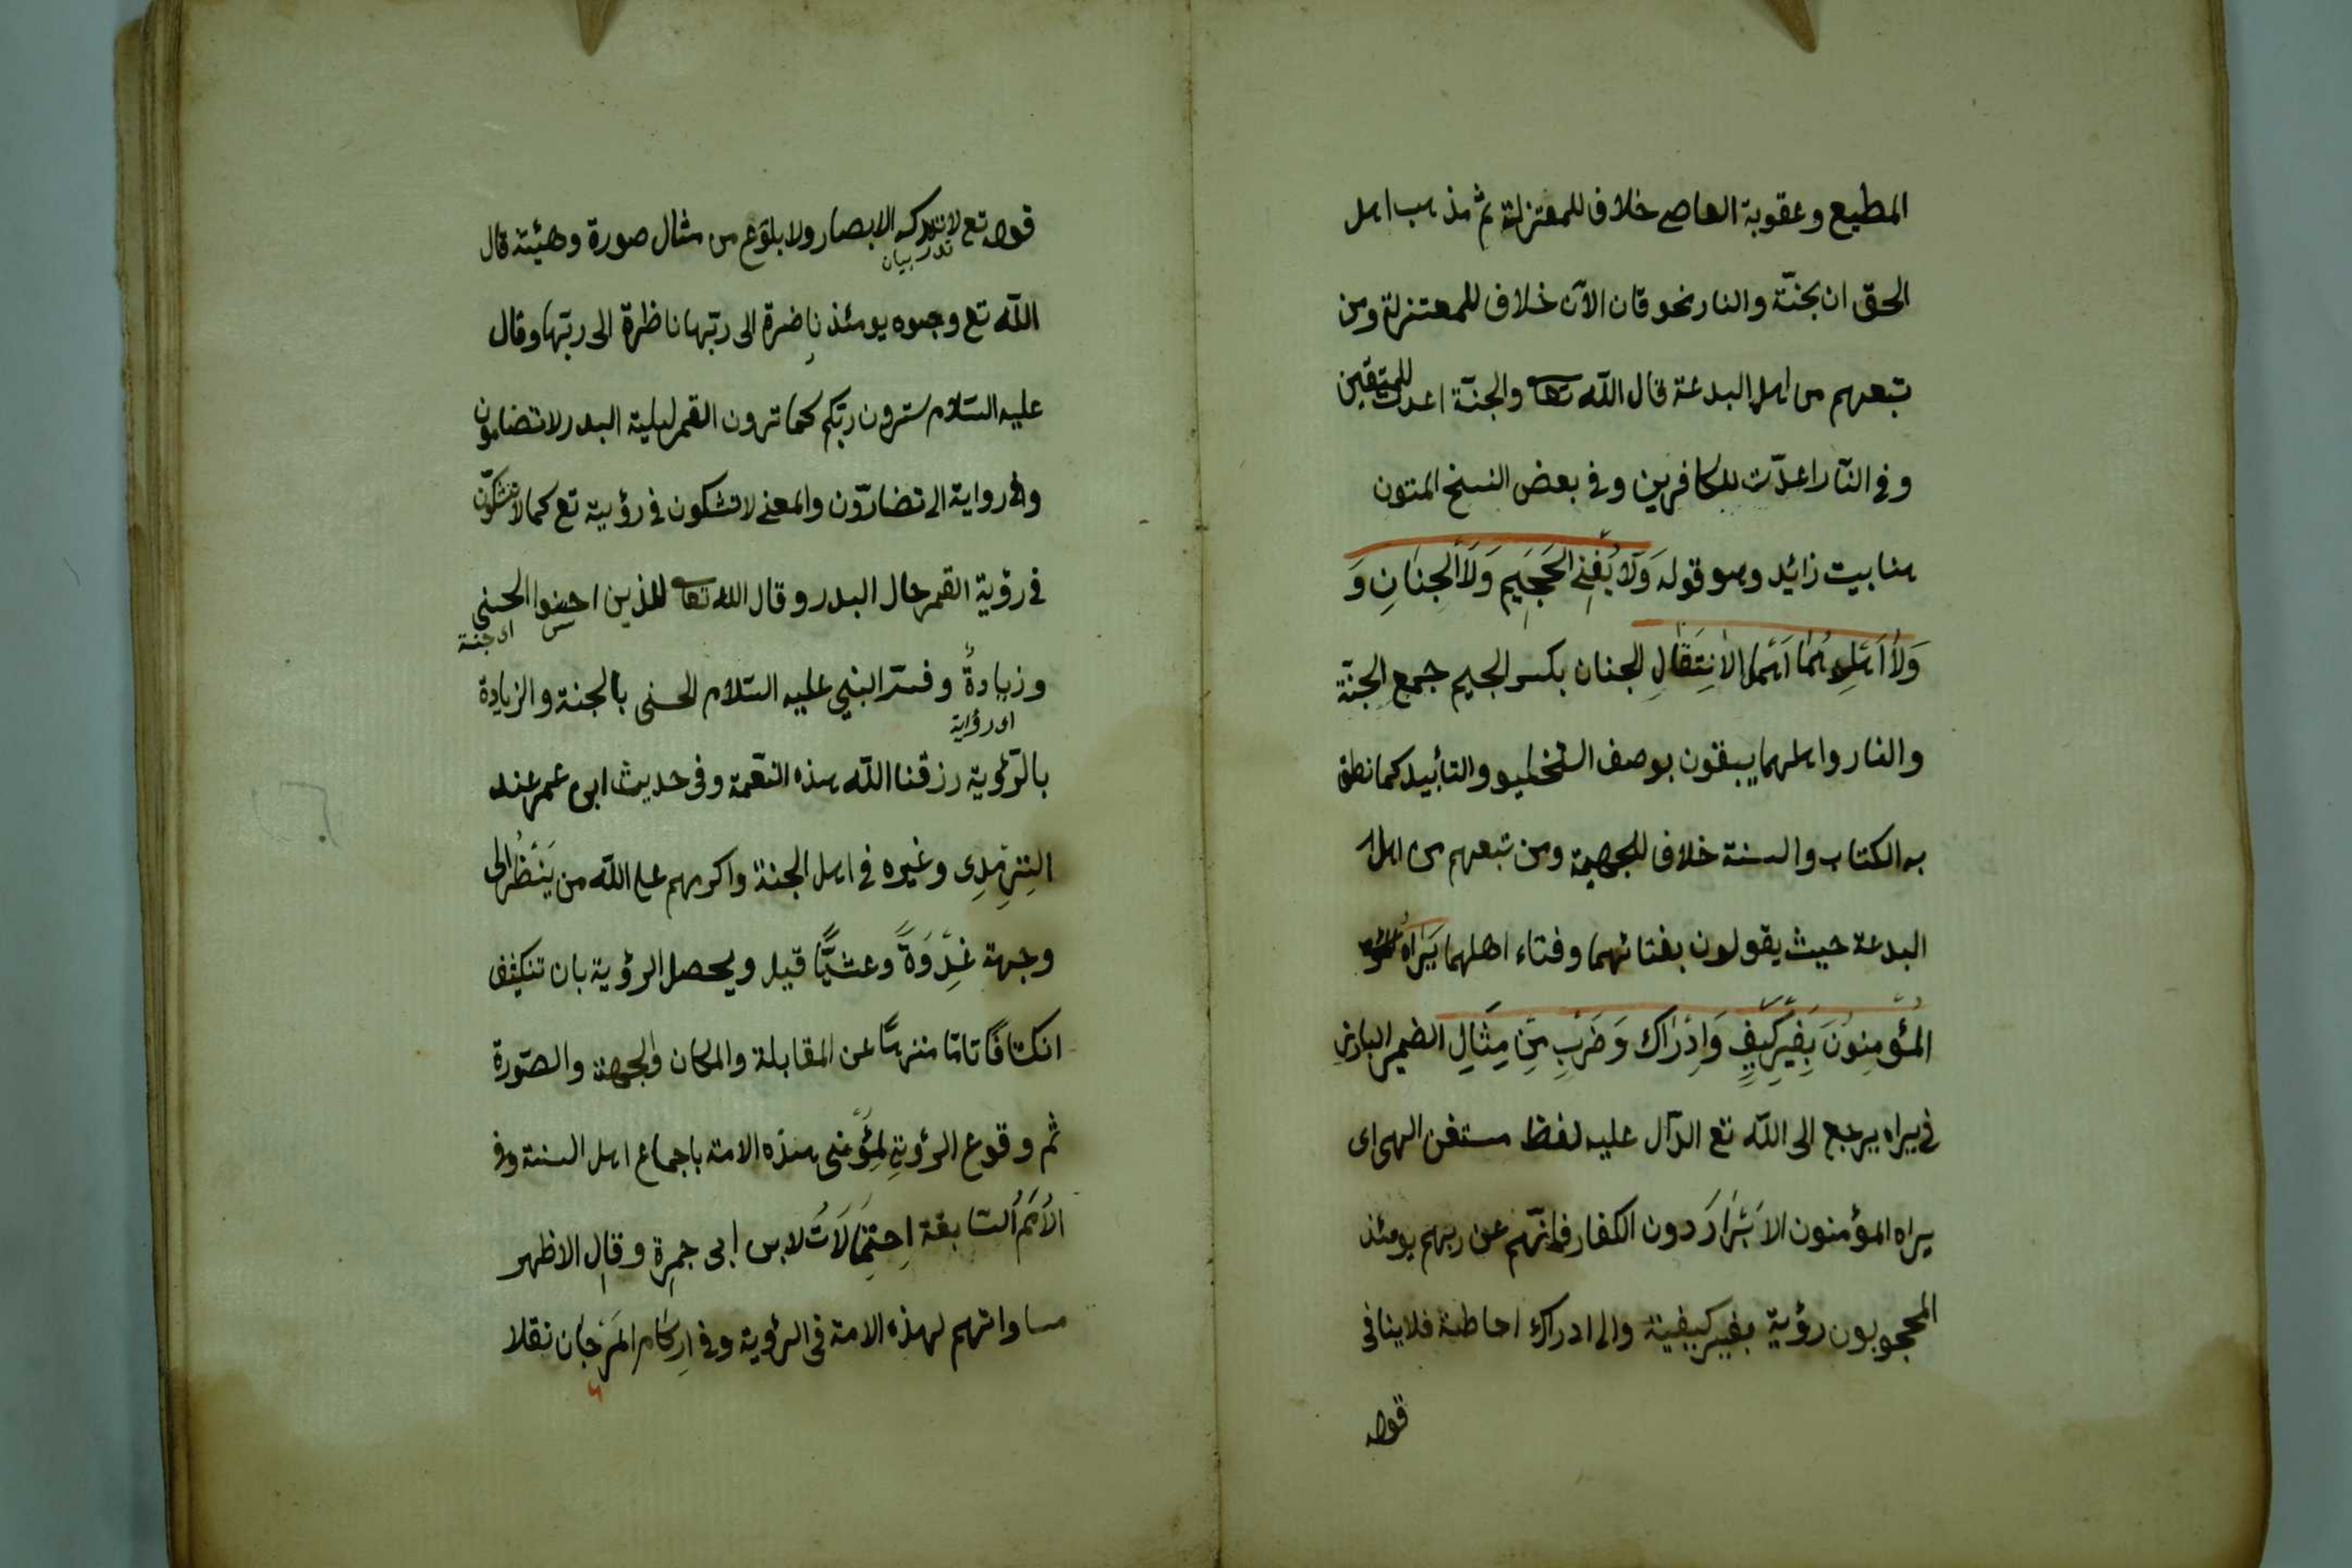 المطيع وعقوبة العاصي خلاف للمعتزلة ثم مذهب اهل
الحق ان جنّة والنار نحوقان الآن خلاف للمعتزلة ومن
تبعهم من اهل البدعة قال الله تعا والجنّة اعدت للمتقين
وفي النّار اعدّت للكافرين وفي بعض النسخ المتون
هنا بيت زائد وهو قوله وَلَا يُفْنِي الجَحِيمِ وَلَا الْجِنَانِ وَ
وَلَا اَهْلِهُمَا اَهْلِ الاِنْتِقَالِ الجنان بكسر الجيم جمع الجنّة
والنار واهلهما يبقون بوصف التخليد والتأبيد كما نطق
به الكتاب والسنة خلاف للجهمية ومن تبعهم من اهل
البدعة حيث يقولون بفنائهما وفناء اهلهما يَرَاهُ
المُؤْمِنُونَ بِغَيْرِ كَيْفٍ وَاِدْرَاك وَضَرْبٍ مِن مِثَالِ الضمير البارز
في يراه يرجع الى الله تع الدّال عليه لفظ مستغن الهى اى
يراه المؤمنون الاَبْرَارَ دون الكفار فإنّهم عن ربهم يومئذ
المحجوبون رؤية بغير كيفية والا ادراك احاطة فلا ينافى
قوله
قوله تع لا تدركه الابصار ولا بلوع من مثال صورة وهيئة قال
تدر بيان
الله تع وجوه يومئذ ناضرة الى ربّها ناظرة الى ربّها وقال
عليه السّلام سترون ربّكم كما ترون القمر ليلة البدر لا تضامون
وفى رواية لا تضارّون والمعنى لا تشكون في رؤيية تع كما لا تشكّون
في رؤية القمر حال البدر وقال الله تعا للذين احسنوا الحسنى
س اى جنة
وزيادةٌ وفسّر النبي عليه السّلام الحسنى بالجنة والزيادة
اى رؤية
بالرّؤية رزقنا الله هذه النّعمة وفى حديث ابى عمر عند
التِرْمِذِى وغيره في اهل الجنة واكرمهم على الله من يَنْظُرُ الى
وجهة غِدْوَةً وعشيًّا قيل ويحصل الرؤية بان تنكيفف
انكشافًا تامًا منزهًا عن المقابلة والمكان والجهة والصّورة
ثم وقوع الرؤية لمؤمنى هذه الامة باجماع اهل السنة وفى
الاُمَمُ السّابقة اِحتِمَالَاتُ لابن ابى جمرة وقال الاظهر
مساواتهم لهذه الامة في الرؤية وفى اركام المَرْجَان نقلا